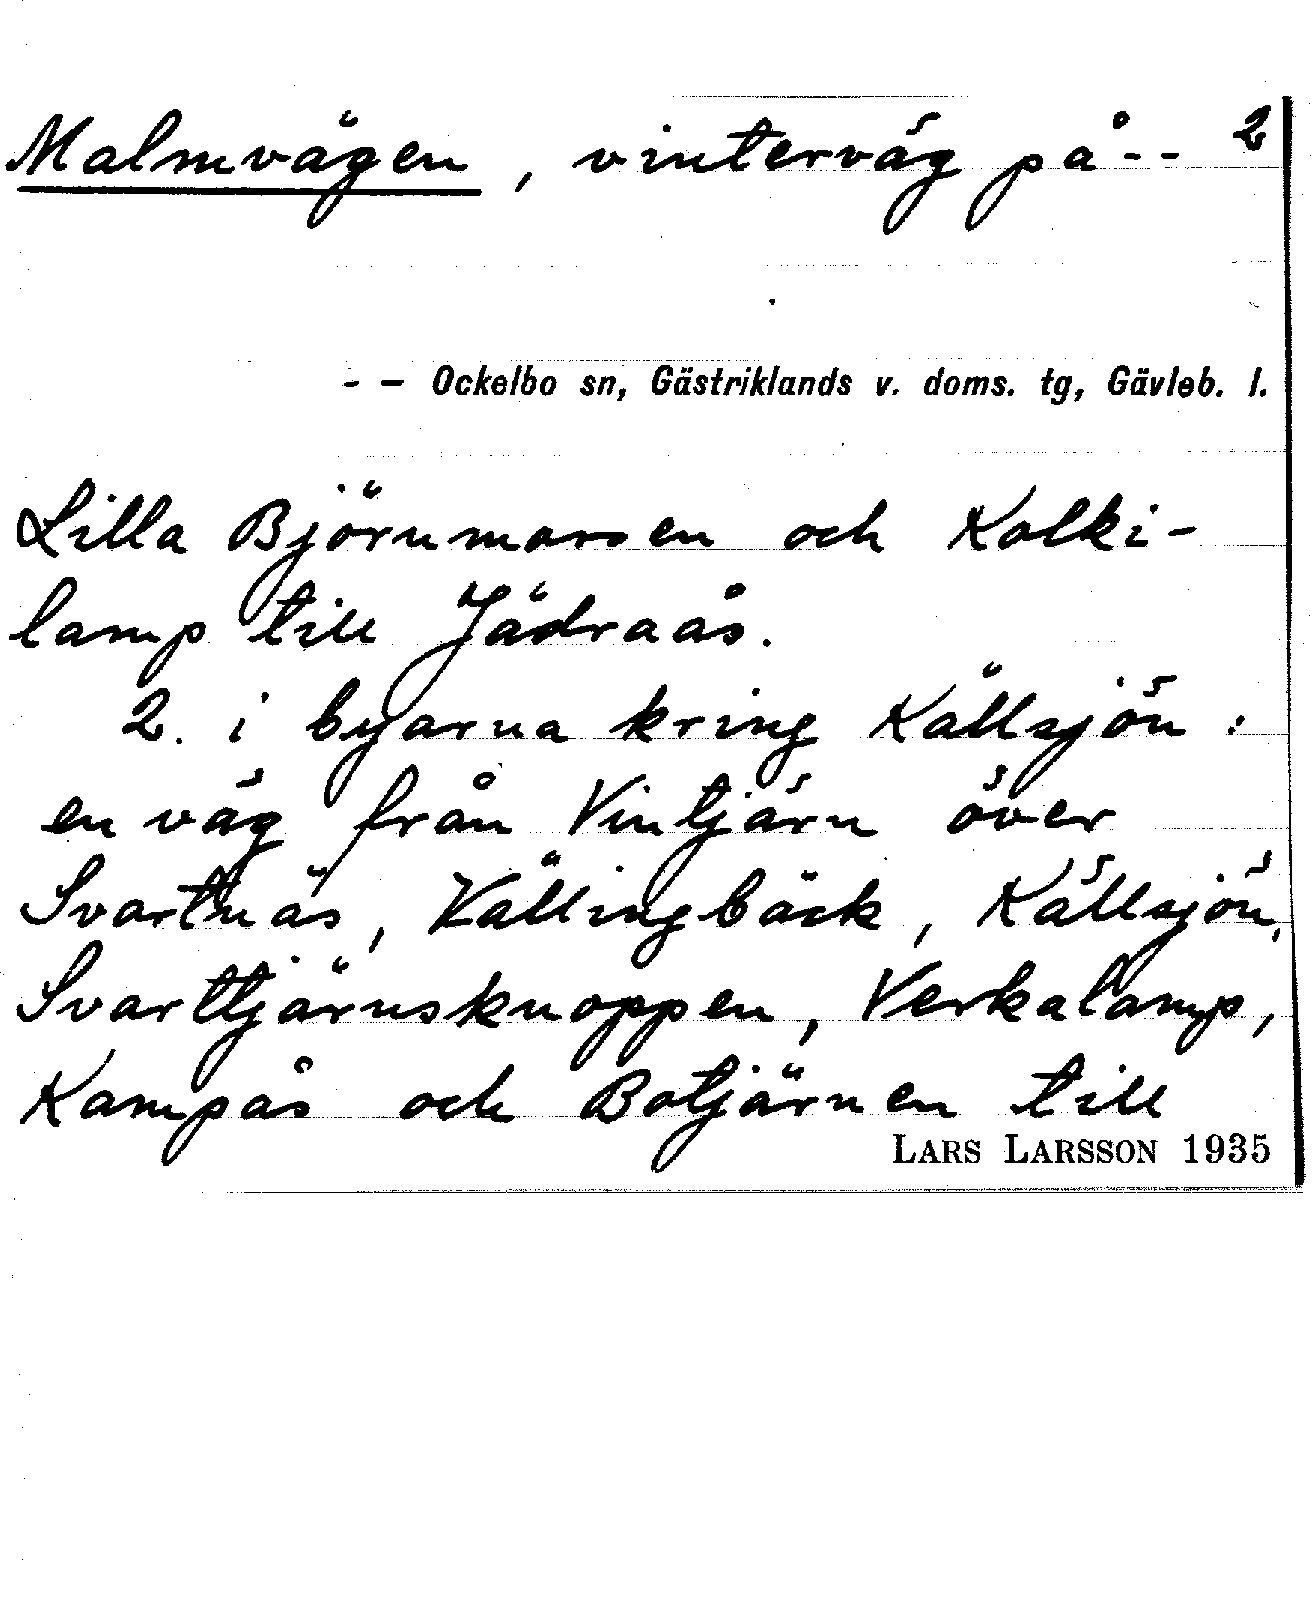 Malmvägen, vinterväg på - - 2
- - Ockelbo sn, Gästriklands v. doms. tg, Gävleb. l.
Lilla Björnmossen och Kolki-
lamp till Jädraås.
2. i byarna kring Källsjön:
en väg från Vintjärn över
Svartnäs, Källingbäck, Källsjön,
Svarttjärnsknoppen, Verkalamp,
Kampås och Botjärnen till
LARS LARSSON 1935